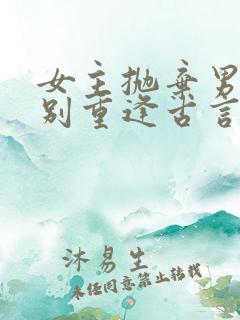 女主抛弃男
别重逢古言
沐易生
未经同意禁止转载